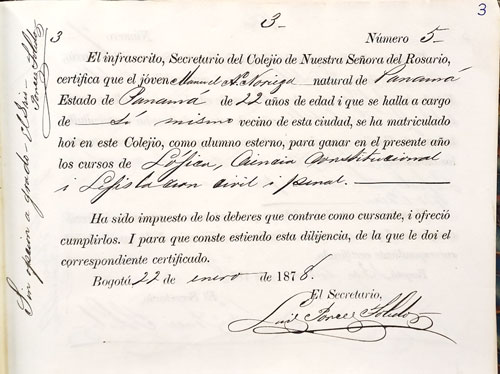 3
3
3
Número 5-
El infrascrito, Secretario del Colejio de Nuestra Señora del Rosario,
certifica que el jóven Manuel A. Noriega natural de Panamá
Estado de Panamá de 22 años de edad i que se halla a cargo
de Sí mismo vecino de esta ciudad, se ha matriculado
hoi en este Colejio, como alumno esterno, para ganar en el presente año
los cursos de Lójica, Ciencia Constitucional
i Lejislacion civil i penal.
Ha sido impuesto de los deberes que contrae como cursante, i ofreció
cumplirlos. I para que conste estiendo esta dilijencia, de la que le doi el
correspondiente certificado.
Bogotá 22 de enero de 1878.
El Secretario,
Luis Ponce Toledo
Sin opcion a grado- El Srio-
Ponce Toledo